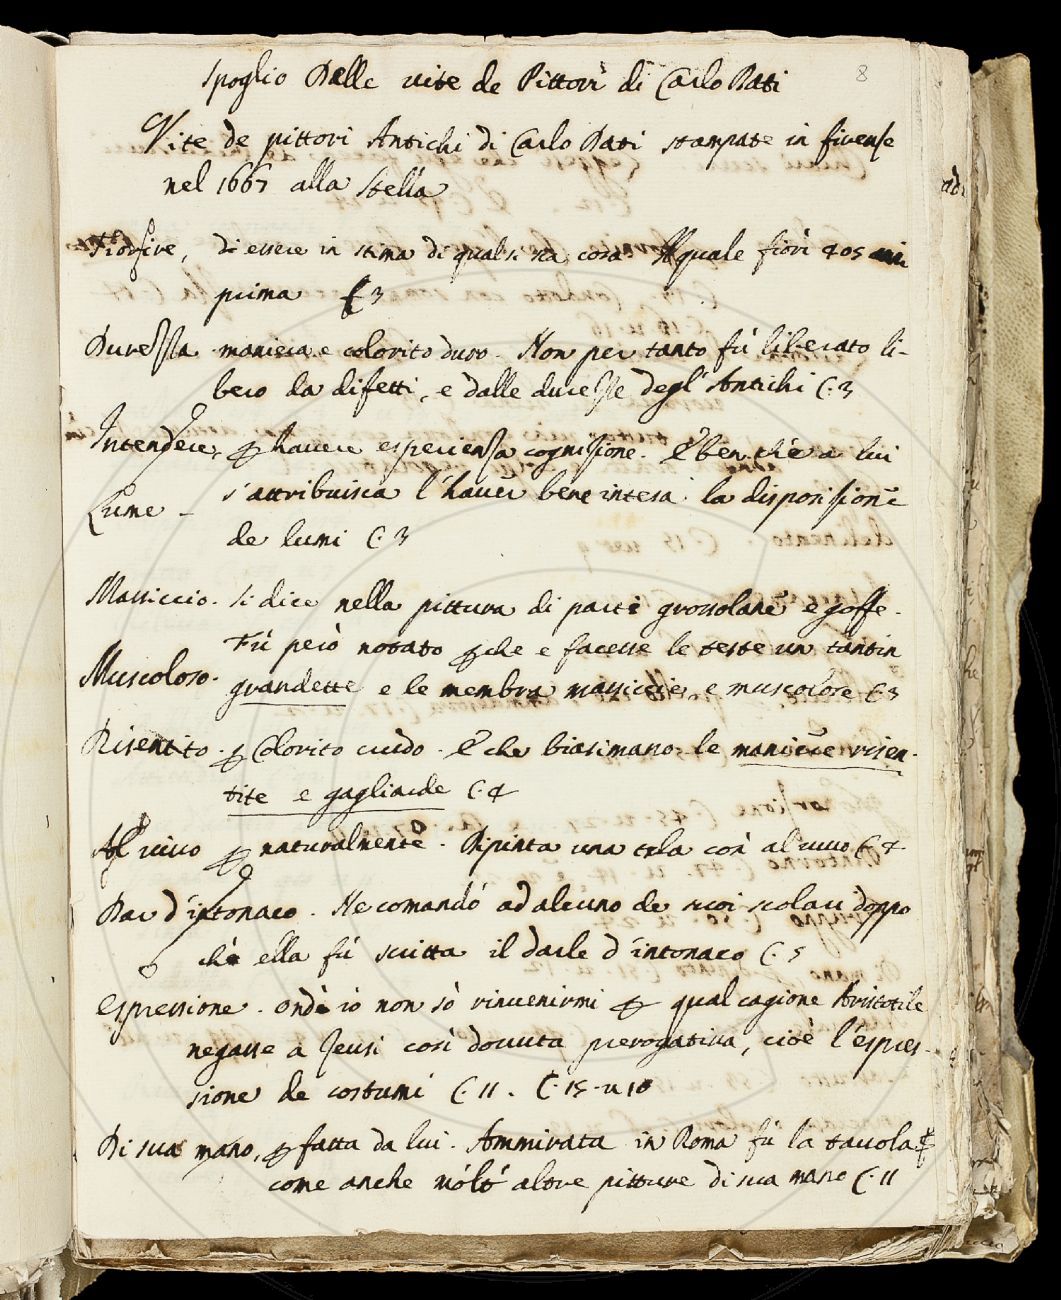 8
Spoglio Delle vite de Pittori di Carlo Dati
Vite de pittori Antichi di Carlo Dati stampate in firenze
nel 1667 alla Stella
Fiorire, di essere in stima di qual si sia cosa Il quale fiorì 405 anni
prima C 3
Durezza maniera e colorito duro. Non per tanto fù liberato li-
bero da difetti, e dalle durezze degl'Antichi C. 3
Intendere, havere esperienza cognizione. E ben chè a lui
s'attribuisca l'haver bene intesa la disposizione
Lume -
de lumi C. 3
Massiccio. si dice nella pittura di parti grossolane e goffe.
Fù però notato che e facesse le teste un tantin
Muscoloso.
grandette e le membra massiccie, e muscolose C 3
Risentito. Colorito crudo. E che biasimano le maniere risen-
tite e gagliarde C. 4
Al vivo naturalmente. Dipinta una tela così al vivo C. 4
Dar d'intonaco. Ne comandò ad alcuno de suoi scolari doppo
chè ella fù scritta il darle d'intonaco C. 5
Espressione. ondè io non sò rinvenirmi qual cagione Aristotile
negasse a Zeusi così dovuta prerogativa, cioè l'espres-
sione de costumi C. 11. C. 15. u 10
Di sua mano, fatta da lui. Ammirata in Roma fù la tavola
come anche altre pitture di sua mano C. 11